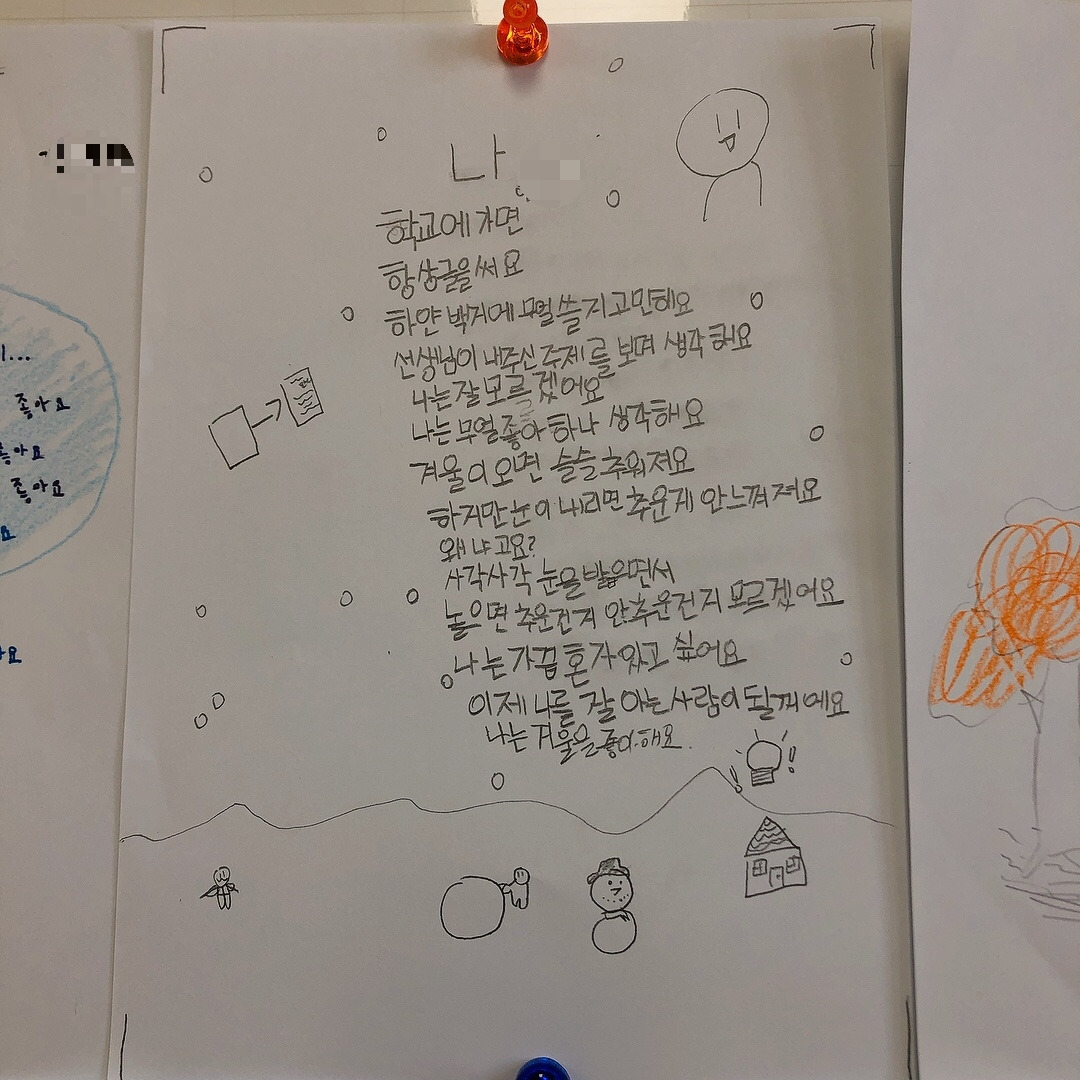 나
학교에 가면
항상글을써요
하얀 백지에 무얼 쓸지 고민해요
선생님이 내주신 주제를 보며 생각해요
나는 잘 모르겠어요
나는 무얼 좋아하나 생각해요
겨울이 오면 슬슬 추워져요
하지만 눈이 내리면 추운게 안느껴져요
왜냐고요?
사각사각 눈을 밟으면서
놀으면 추운건지 안추운건지 모르겠어요
나는 가끔 혼자 있고 싶어요
이제 나를 잘 아는 사람이 될꺼에요
나는 겨울을 좋아해요.
좋아요
좋아요
좋아요